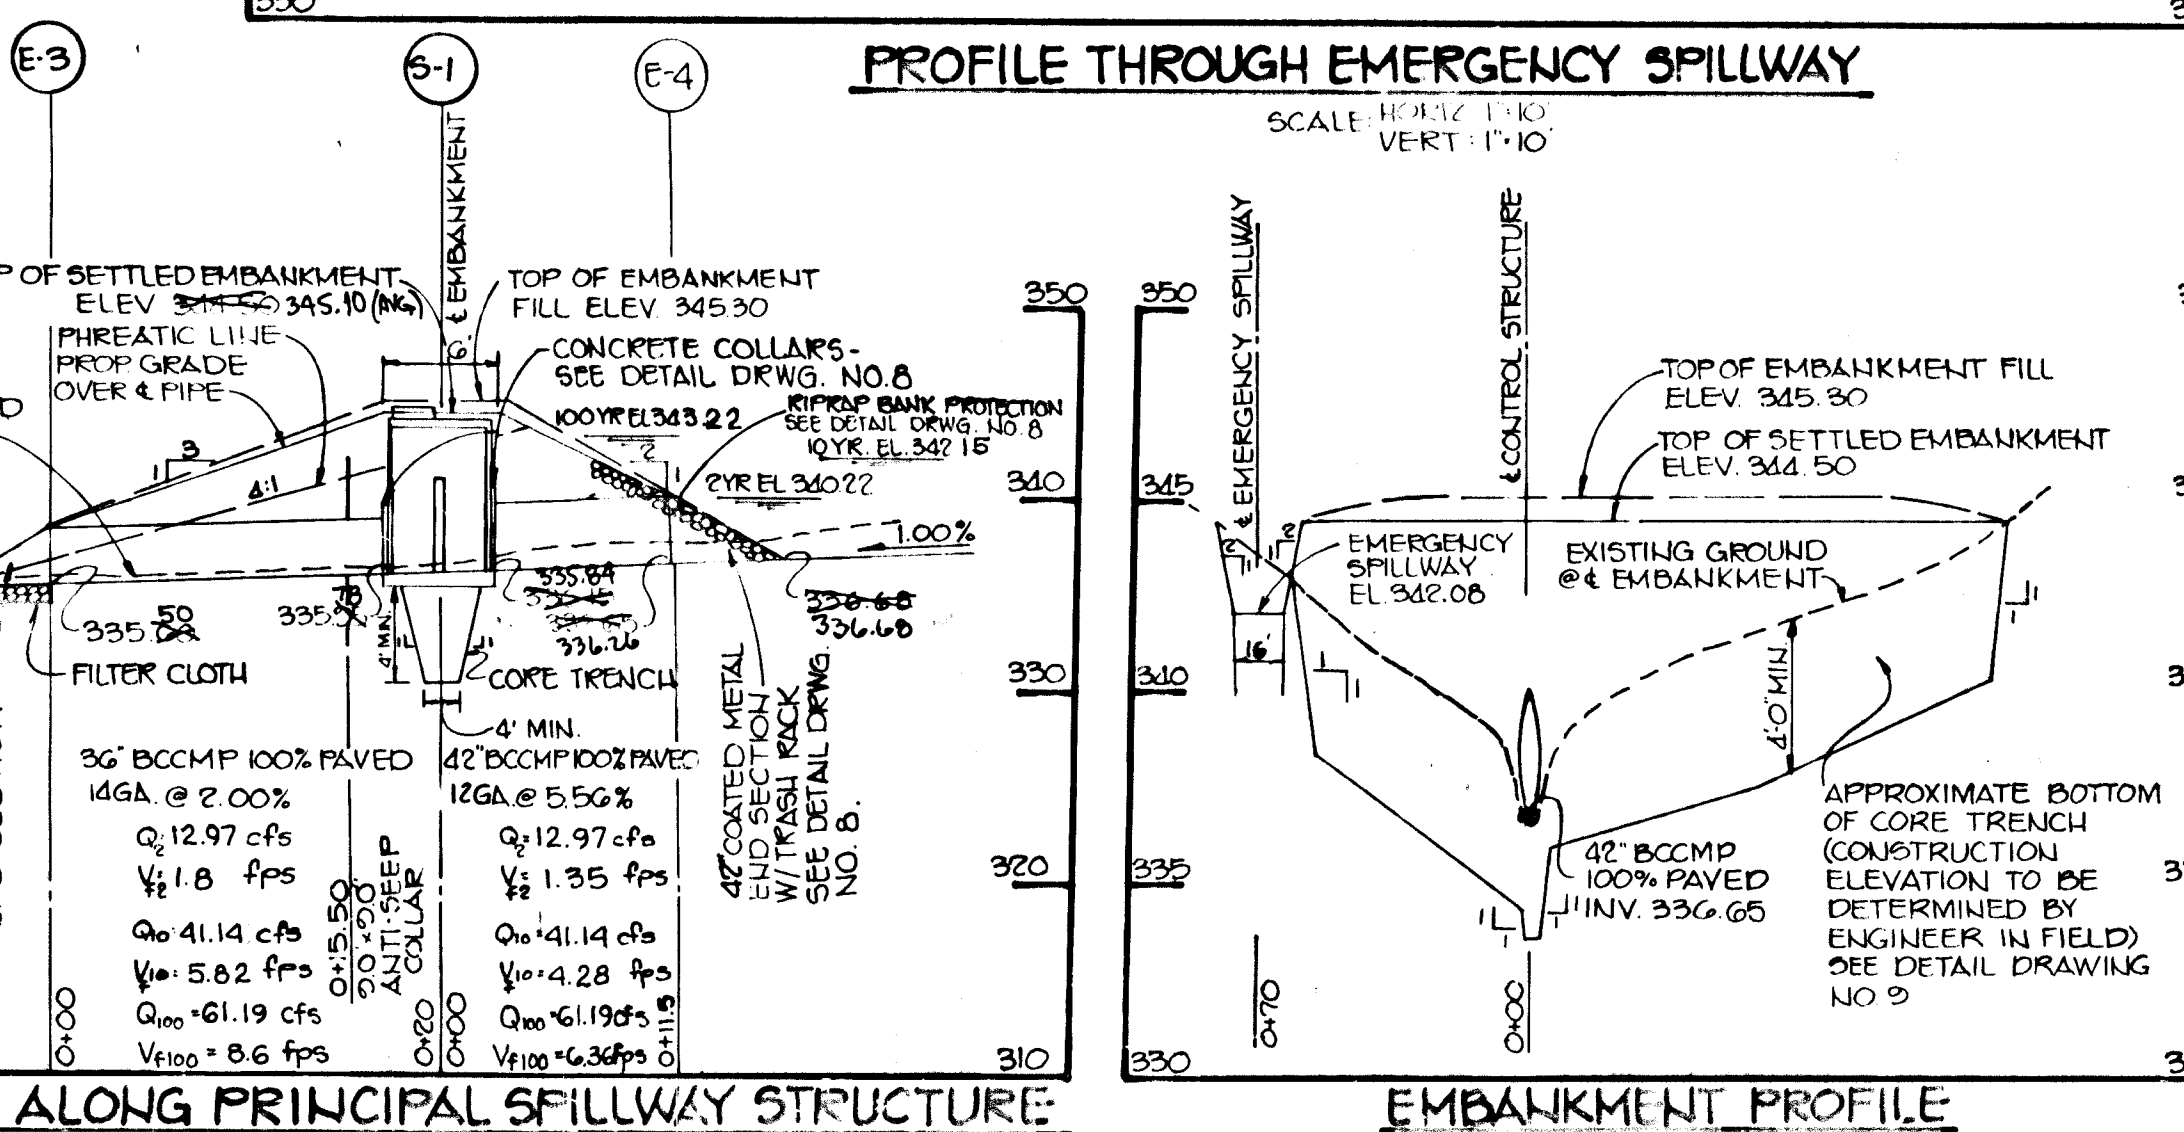 350
E-3
S-1
E-4
PROFILE THROUGH EMERGENCY SPILLWAY
SCALE: HORIZ 1"=10'
VERT : 1"=10'
℄ EMBANKMENT
P OF SETTLED EMBANKMENT
ELEV 344.50 345.10 (AVG)
PHREATIC LINE
PROP. GRADE
OVER ℄ PIPE
TOP OF EMBANKMENT
FILL ELEV. 345.30
6'
CONCRETE COLLARS-
SEE DETAIL DRWG. NO. 8
100YR EL 343.22
RIPRAP BANK PROTECTION
SEE DETAIL DRWG. NO. 8
10 YR. EL. 342.15
2YR EL 340.22
1.00%
1
3
4:1
2
1
335.50
335.78
335.84
336.26
336.68
336.68
4' MIN.
FILTER CLOTH
CORE TRENCH
4' MIN.
36" BCCMP 100% PAVED
14GA. @ 2.00%
Q2: 12.97 cfs
Vf2: 1.8 fps
Q10: 41.14 cfs
Vf10: 5.82 fps
Q100 = 61.19 cfs
Vf100 = 8.6 fps
42" BCCMP 100% PAVED
12GA. @ 5.56%
Q2: 12.97 cfs
Vf2: 1.35 fps
Q10: 41.14 cfs
Vf10: 4.28 fps
Q100: 61.19 cfs
Vf100 = 6.36 fps
0+00
0+15.50
9.0'x9.0'
ANTI-SEEP
COLLAR
0+20
0+00
0+11.5
42" COATED METAL
END SECTION
W/TRASH RACK
SEE DETAIL DRWG.
NO. 8.
350
340
330
320
310
ALONG PRINCIPAL SPILLWAY STRUCTURE
350
345
340
335
330
℄ EMERGENCY SPILLWAY
℄ CONTROL STRUCTURE
TOP OF EMBANKMENT FILL
ELEV. 345.30
TOP OF SETTLED EMBANKMENT
ELEV. 344.50
2
1
1
2
EMERGENCY
SPILLWAY
EL. 342.08
EXISTING GROUND
@ ℄ EMBANKMENT
16'
1
1
1
1
4'-0" MIN.
42" BCCMP
100% PAVED
INV. 336.65
1
1
1
1
APPROXIMATE BOTTOM
OF CORE TRENCH
(CONSTRUCTION
ELEVATION TO BE
DETERMINED BY
ENGINEER IN FIELD)
SEE DETAIL DRAWING
NO. 9
0+70
0+00
EMBANKMENT PROFILE